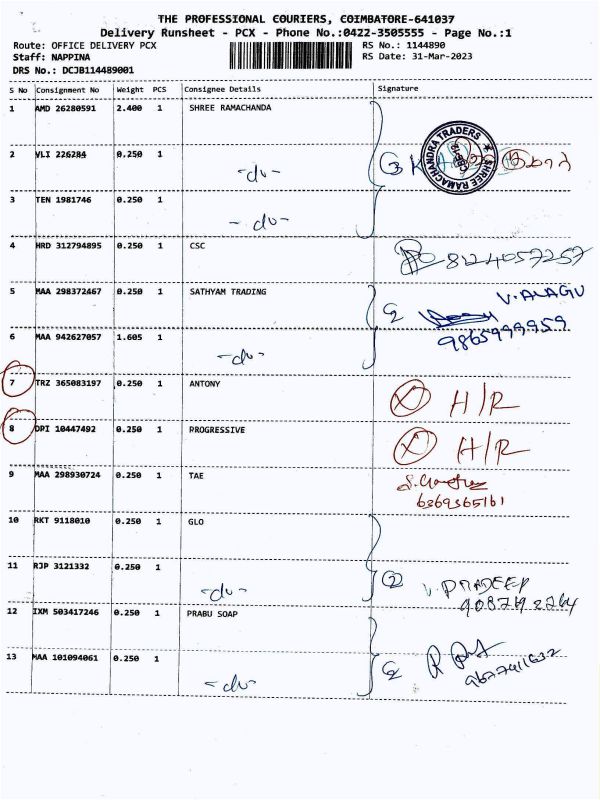 THE PROFESSIONAL COURIERS, COIMBATORE-641037
Delivery Runsheet - PCX - Phone No.:0422-3505555 - Page No.:1
Route: OFFICE DELIVERY PCX RS No.: 1144890
Staff: NAPPINA RS Date: 31-Mar-2023
DRS No.: DCJB114489001
S No Consignment No Weight PCS Consignee Details Signature
1 AMD 26280591 2.400 1 SHREE RAMACHANDA
SHREE RAMACHANDRA TRADERS
2 VLI 226284 0.250 1 -do- 3
3 TEN 1981746 0.250 1 -do-
4 HRD 312794895 0.250 1 CSC 8124057257
5 MAA 298372467 0.250 1 SATHYAM TRADING 2 V.ALAGU
9865999959
6 MAA 942627057 1.605 1 -do-
7 TRZ 365083197 0.250 1 ANTONY X H/R
8 DPI 10447492 0.250 1 PROGRESSIVE X H/R
9 MAA 298930724 0.250 1 TAE
6369365161
10 RKT 9118010 0.250 1 GLO
11 RJP 3121332 0.250 1 -do- 2 V.PRADEEP
12 IXM 503417246 0.250 1 PRABU SOAP
13 MAA 101094061 0.250 1 -do- 2
9677411632